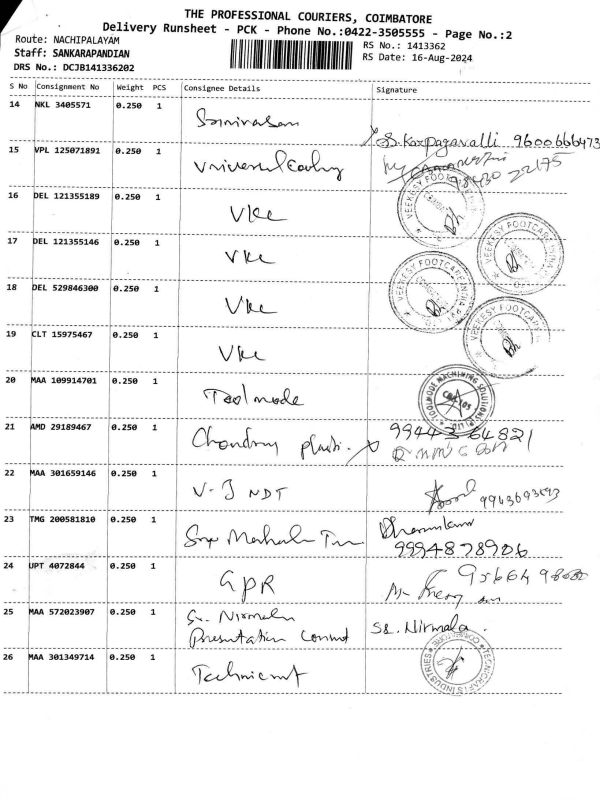 THE PROFESSIONAL COURIERS, COIMBATORE
Delivery Runsheet - PCK - Phone No.:0422-3505555 - Page No.:2
Route: NACHIPALAYAM
Staff: SANKARAPANDIAN
DRS No.: DCJB141336202
RS No.: 1413362
RS Date: 16-Aug-2024
S No Consignment No Weight PCS Consignee Details Signature
14 NKL 3405571 0.250 1 Srinivasan S. Karpagavalli 9600666473
15 VPL 125071891 0.250 1 Universal 98430 22175
16 DEL 121355189 0.250 1 Vkc VEEKESY FOOTCARE
17 DEL 121355146 0.250 1 Vkc VEEKESY FOOTCARE
18 DEL 529846300 0.250 1 Vkc VEEKESY FOOTCARE
19 CLT 15975467 0.250 1 Vkc VEEKESY FOOTCARE
20 MAA 109914701 0.250 1 Toolmode TOOLMODE MACHINING SOLUTIONS
21 AMD 29189467 0.250 1 99443 64821
22 MAA 301659146 0.250 1 V-J NDT
23 TMG 200581810 0.250 1 9994878906
24 UPT 4072844 0.250 1 GPR
25 MAA 572023907 0.250 1 Sr. Nirmala Sr. Nirmala.
Presentation Convent
26 MAA 301349714 0.250 1 INDUSTRIES